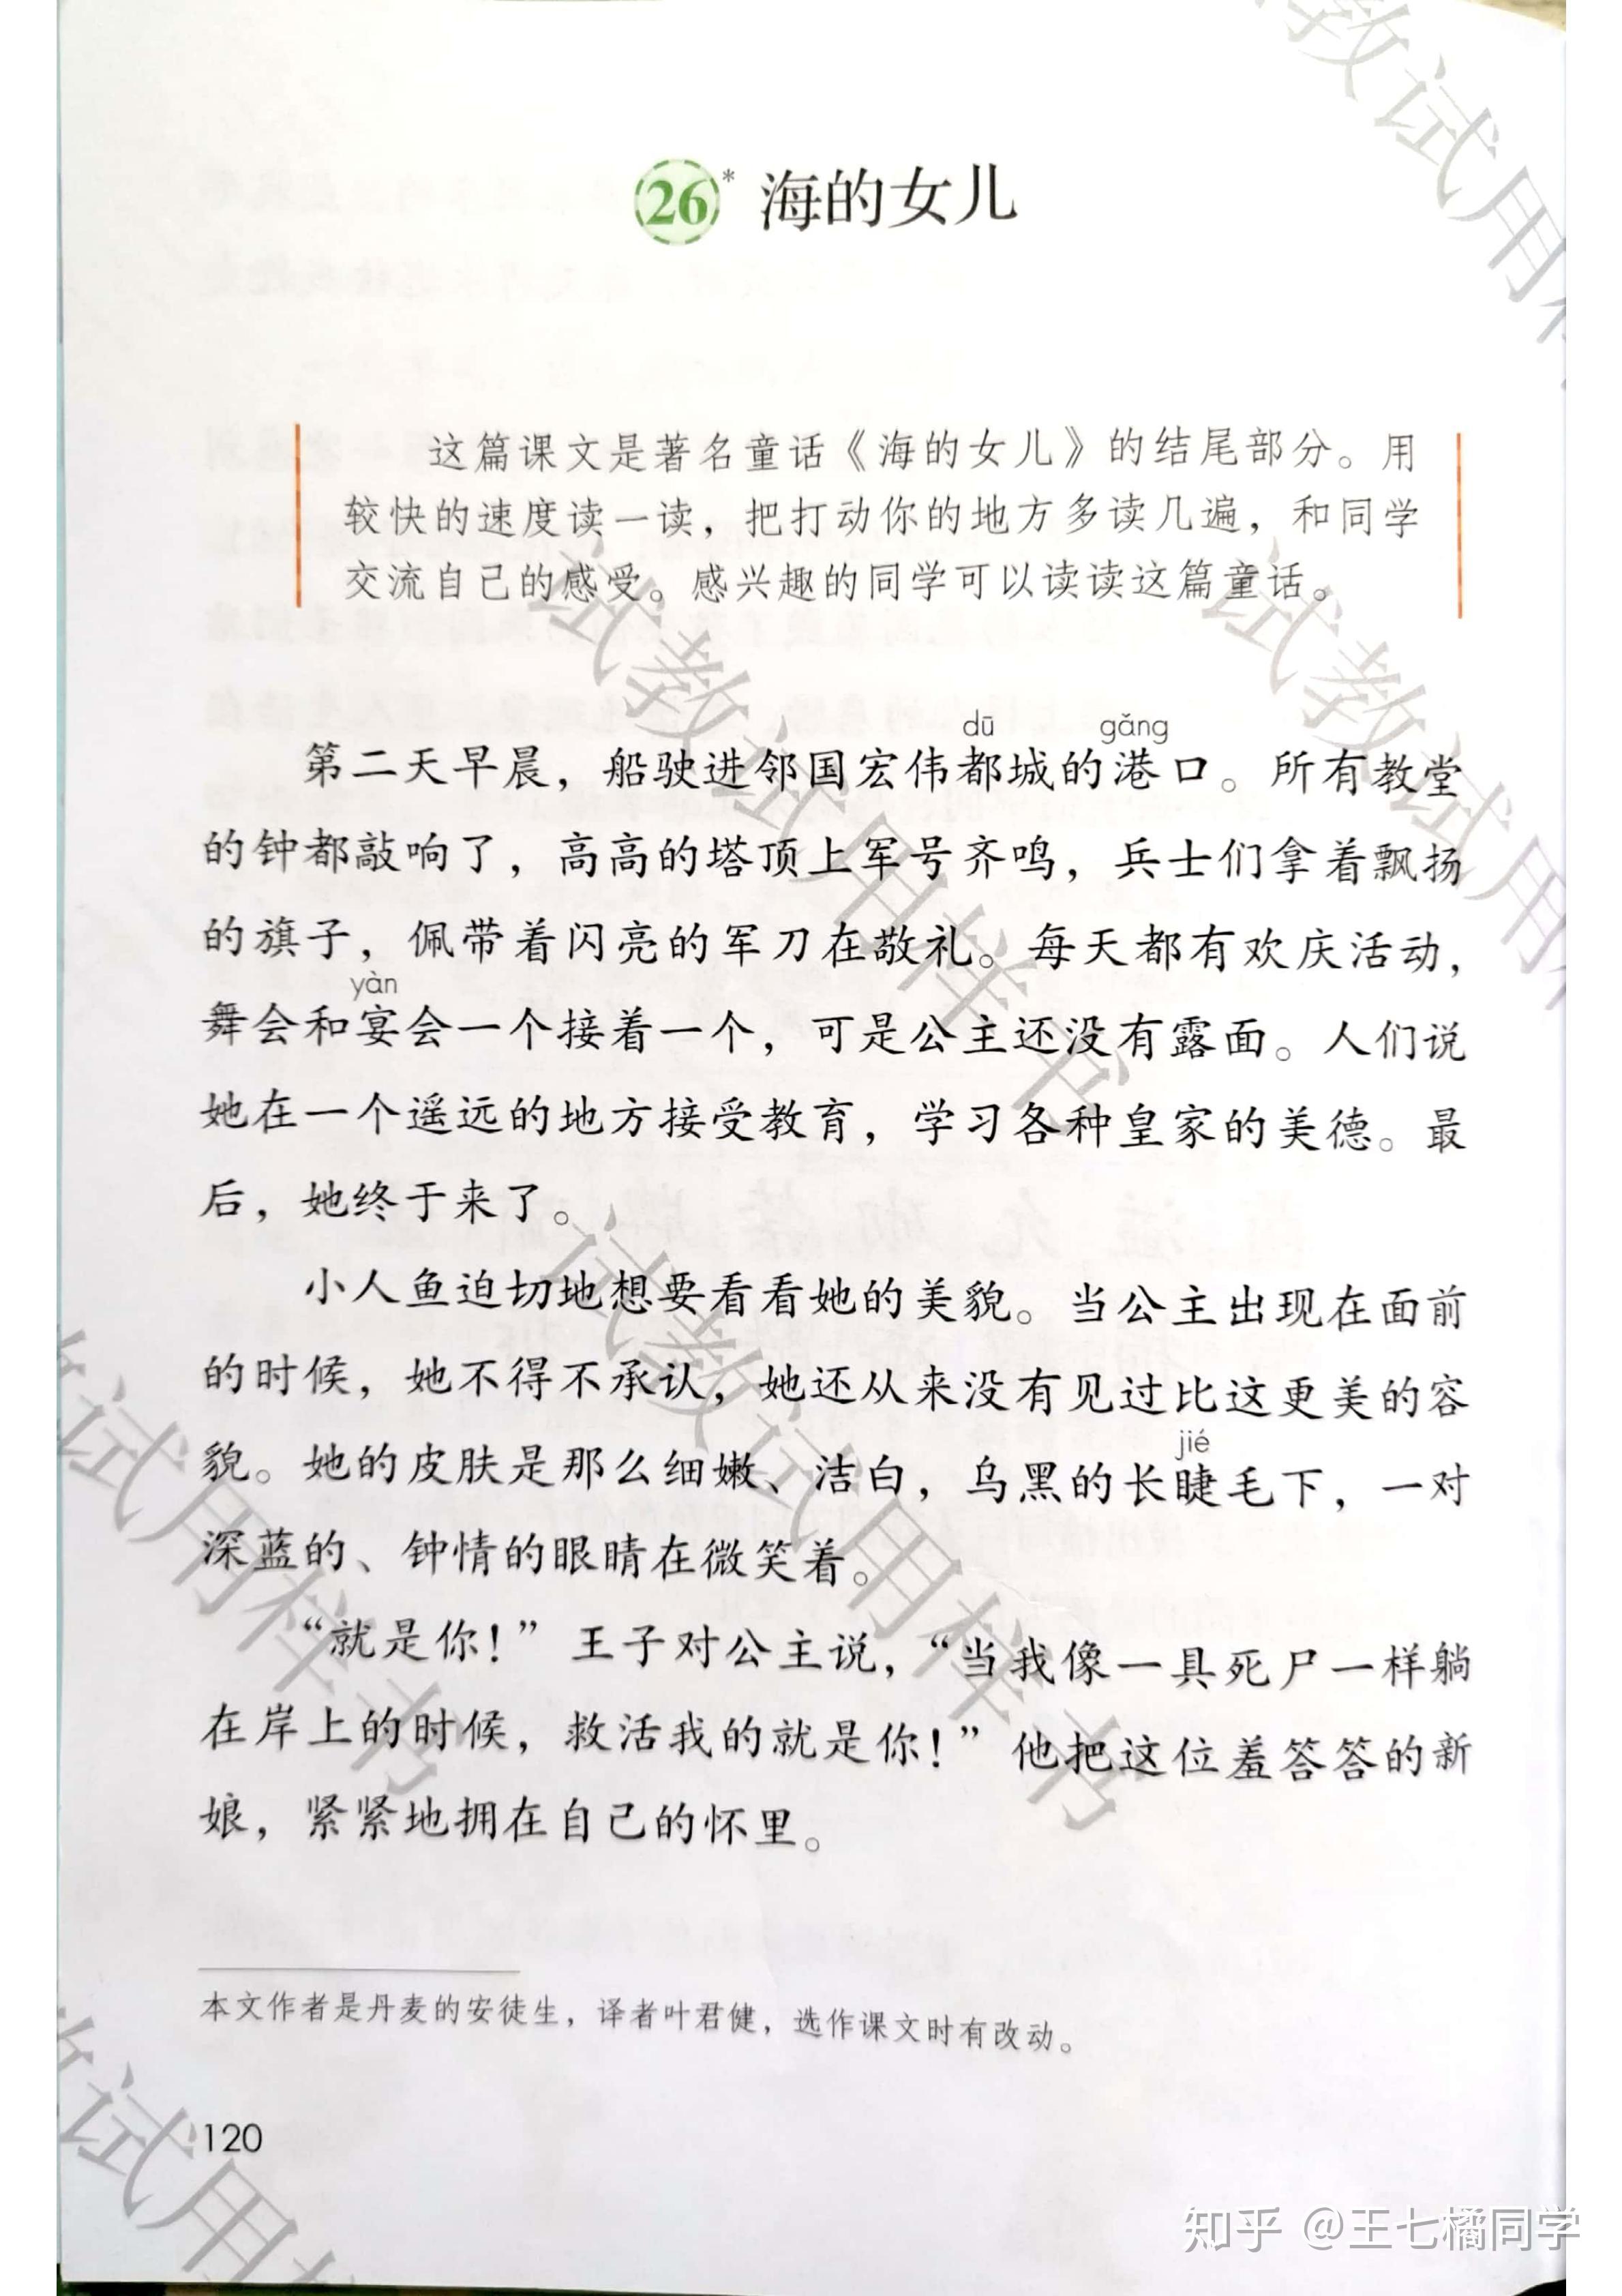 26* 海的女儿
这篇课文是著名童话《海的女儿》的结尾部分。用
较快的速度读一读，把打动你的地方多读几遍，和同学
交流自己的感受。感兴趣的同学可以读读这篇童话。
dū gǎng
第二天早晨，船驶进邻国宏伟都城的港口。所有教堂
的钟都敲响了，高高的塔顶上军号齐鸣，兵士们拿着飘扬
的旗子，佩带着闪亮的军刀在敬礼。每天都有欢庆活动，
yàn
舞会和宴会一个接着一个，可是公主还没有露面。人们说
她在一个遥远的地方接受教育，学习各种皇家的美德。最
后，她终于来了。
小人鱼迫切地想要看看她的美貌。当公主出现在面前
的时候，她不得不承认，她还从来没有见过比这更美的容
jié
貌。她的皮肤是那么细嫩、洁白，乌黑的长睫毛下，一对
深蓝的、钟情的眼睛在微笑着。
“就是你！”王子对公主说，“当我像一具死尸一样躺
在岸上的时候，救活我的就是你！”他把这位羞答答的新
娘，紧紧地拥在自己的怀里。
本文作者是丹麦的安徒生，译者叶君健，选作课文时有改动。
120
知乎 @王七橘同学
试教试用样书
试教试用样书
试教试用样书
教试用样
教试用样书
教试用样